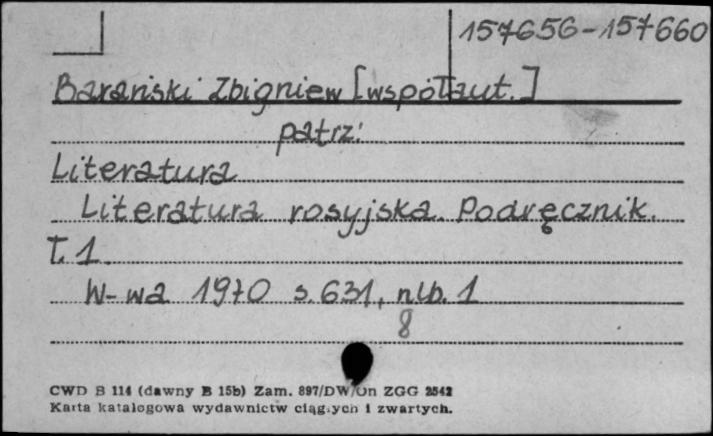 157656-157660
Barański Zbigniew [współaut.]
patrz:
Literatura
Literatura rosyjska. Podręcznik.
T. 1
W-wa 1970 s. 631, nlb. 1
8
CWD B 114 (dawny B 15b) Zam. 897/DW/Un ZGG 2542
Karta katalogowa wydawnictw ciągłych i zwartych.